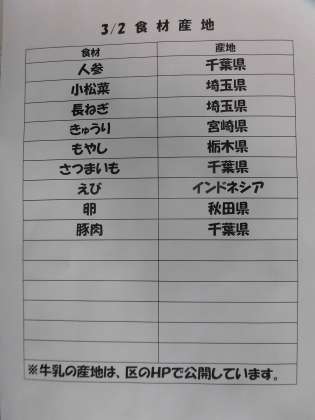 3/2 食材産地
食材 産地
人参 千葉県
小松菜 埼玉県
長ねぎ 埼玉県
きゅうり 宮崎県
もやし 栃木県
さつまいも 千葉県
えび インドネシア
卵 秋田県
豚肉 千葉県
※牛乳の産地は、区のHPで公開しています。